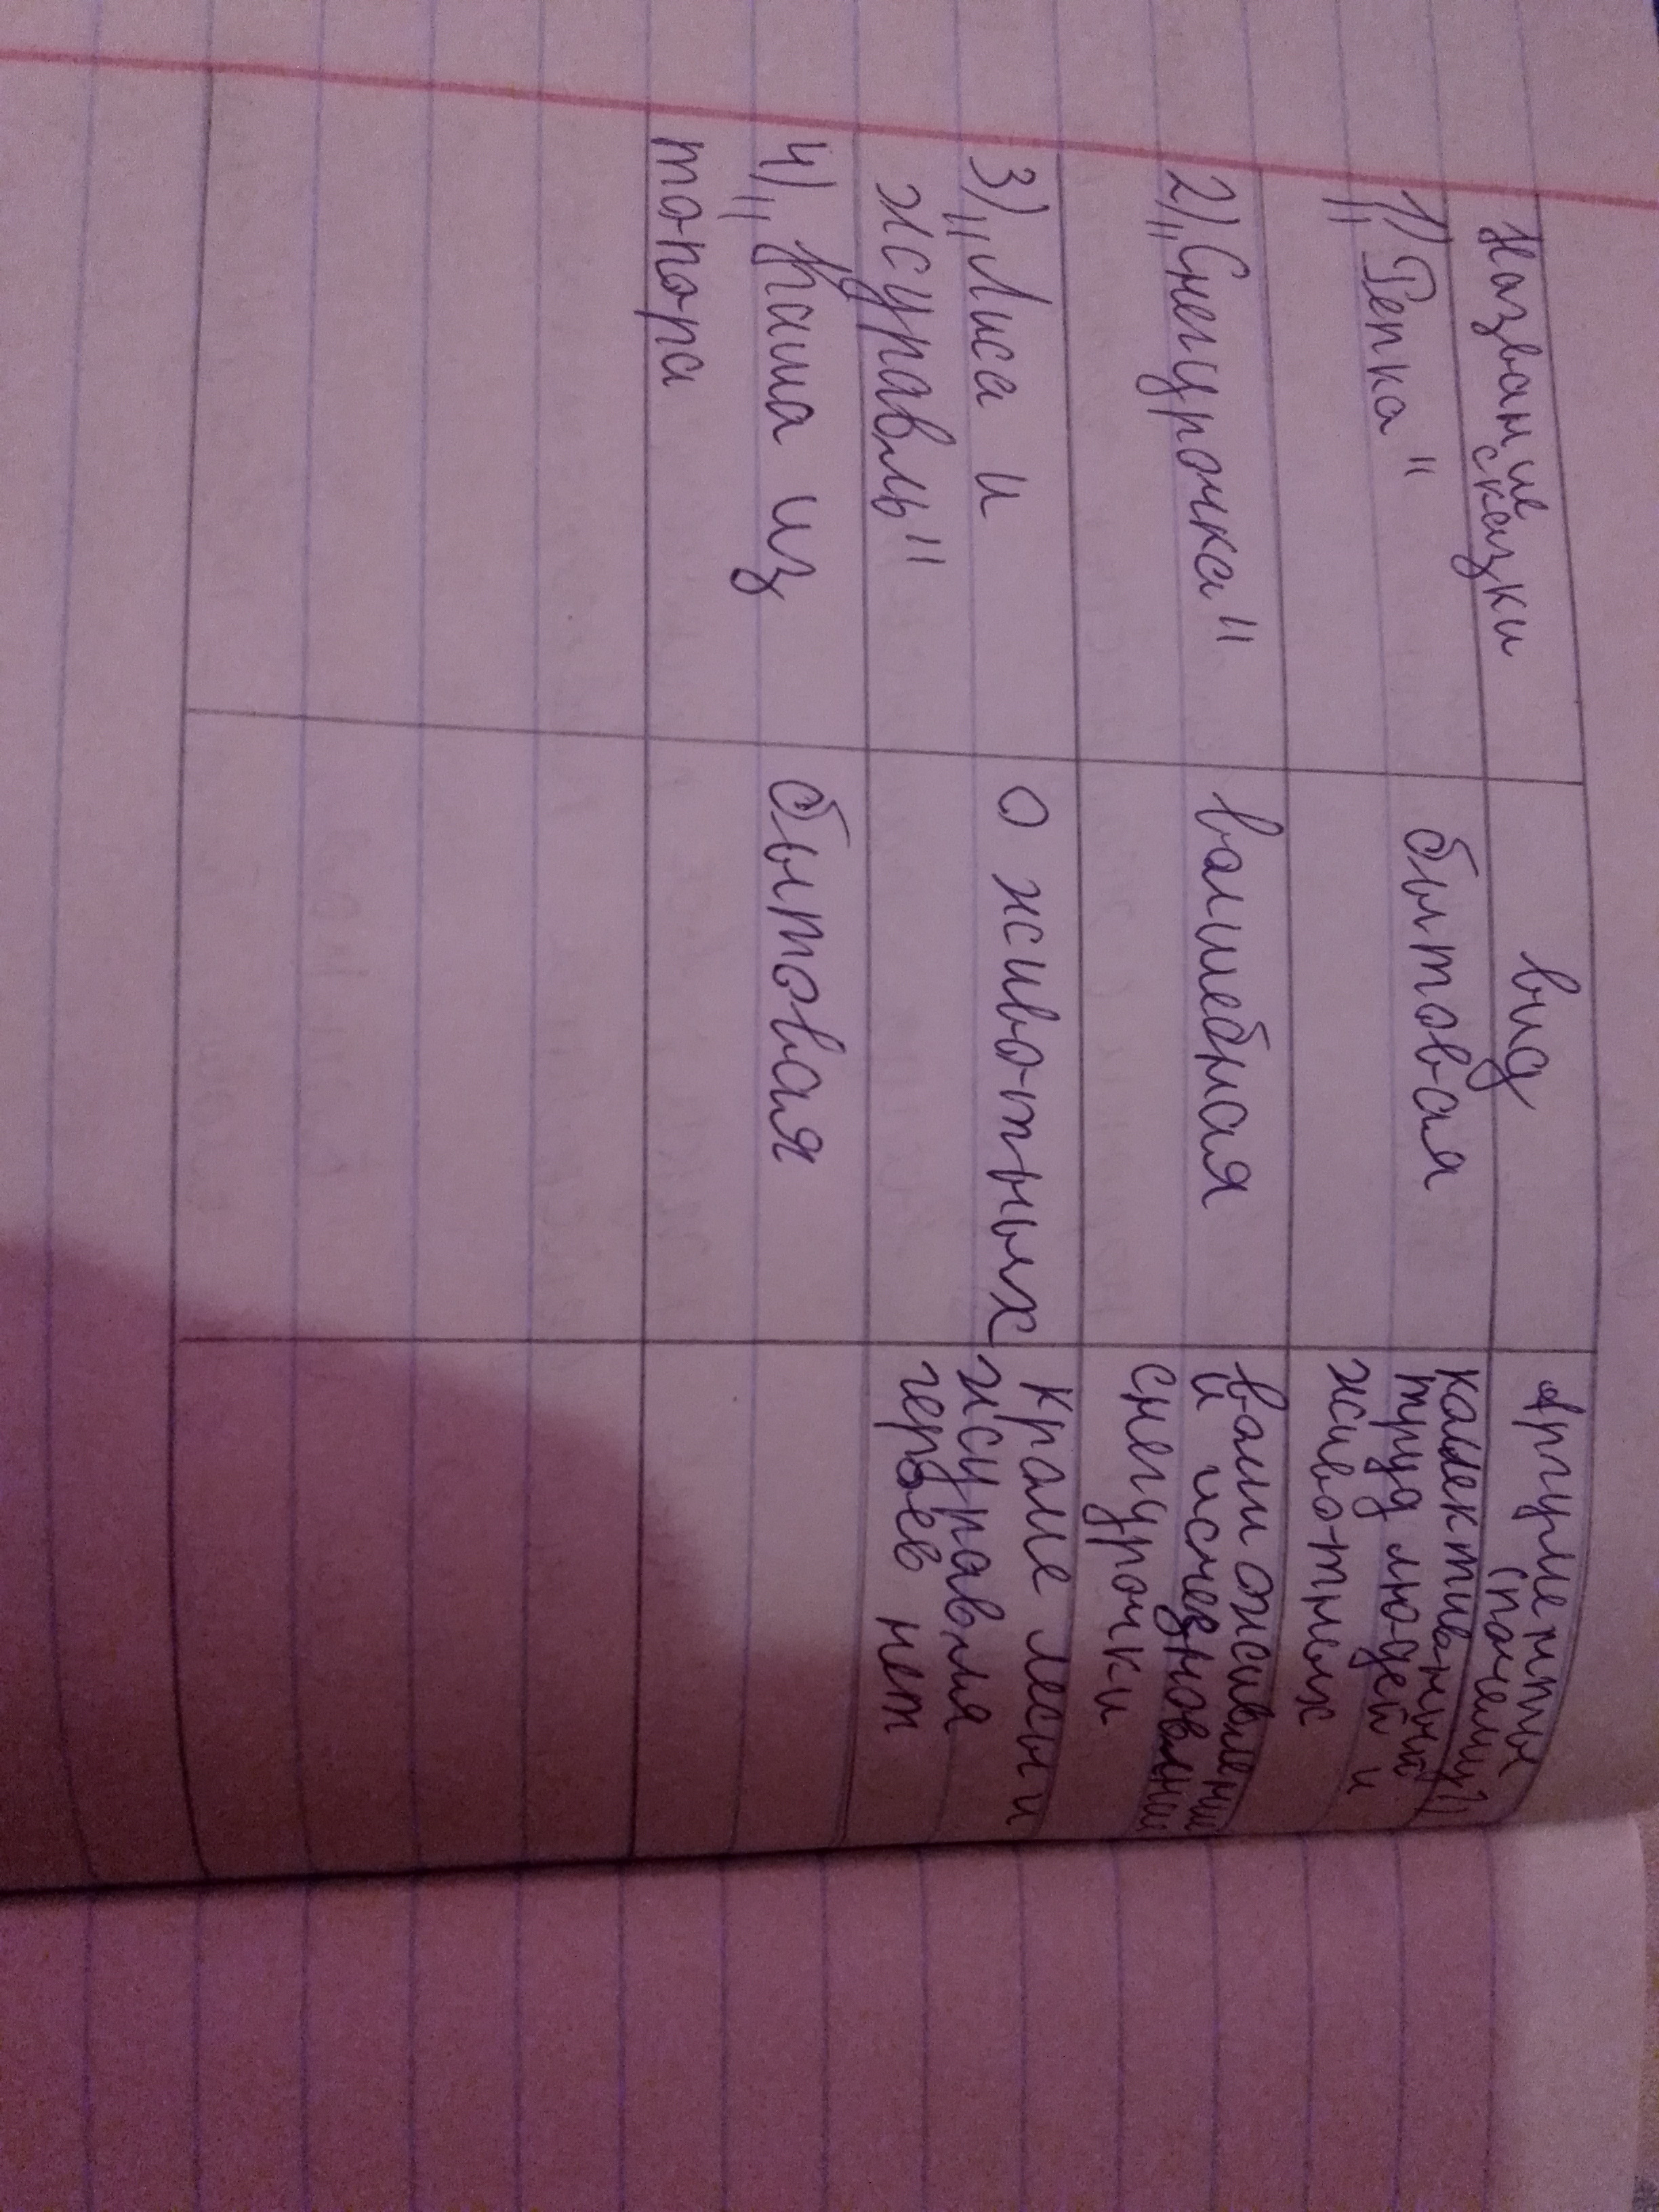 Название вид Аргументы
сказки (почему?)
1) „Репка" бытовая коллективный
труд людей и
животных
2) „Снегурочка" волшебная
и исчезновении
снегурочки
3) „Лиса и о животных кроме лисы и
журавль" журавля
героев нет
4) „Каша из бытовая
топора